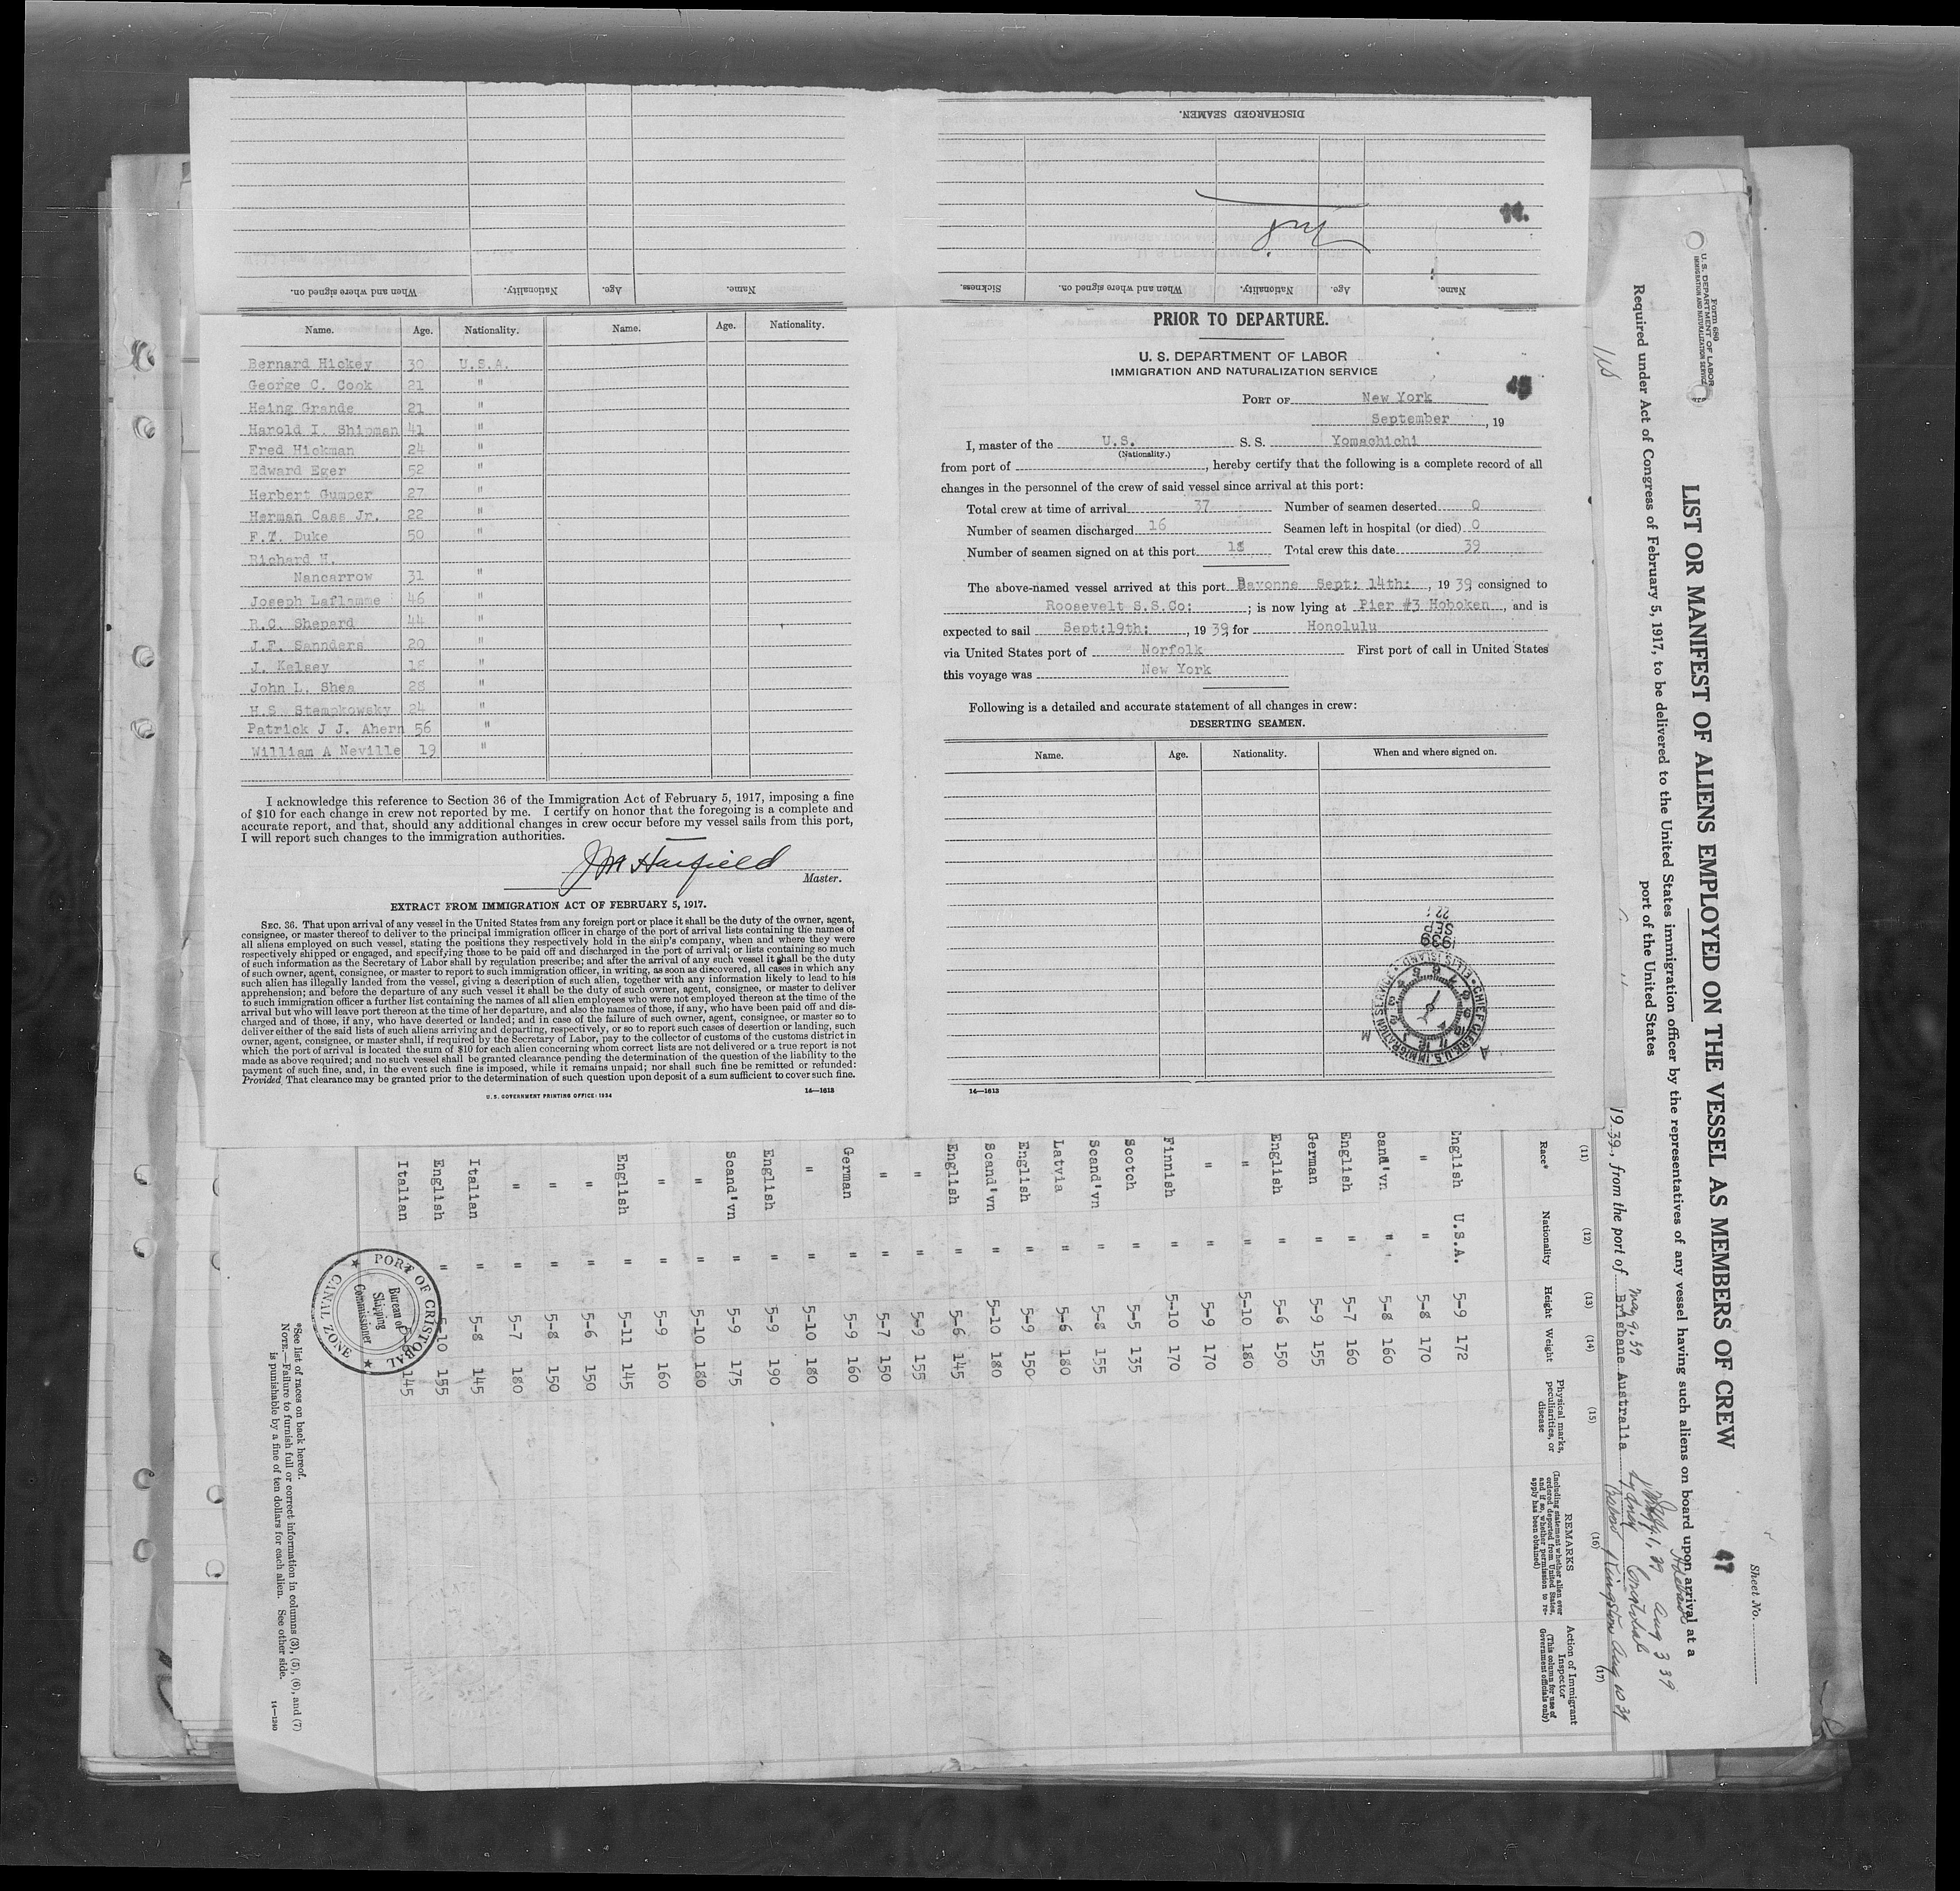 DISCHARGED SEAMEN.
Name. Age. Nationality. When and where signed on. Sickness.
Name. Age. Nationality. When and where signed on.
Name. Age. Nationality. Name. Age. Nationality.
Bernard Hickey 30 U.S.A.
George C. Cook 21 "
Heing Grande 21 "
Harold I. Shipman 41 "
Fred Hickman 24 "
Edward Eger 52 "
Herbert Gumper 27 "
Herman Cass Jr. 22 "
F.T. Duke 50 "
Richard H.
Nancarrow 31 "
Joseph Laflamme 46 "
R.C. Shepard 44 "
J.F. Sannders 20 "
J. Kelsey 18 "
John L. Shea 28 "
H.S Stempkowsky 24 "
Patrick J J. Ahern 56 "
William A Neville 19 "
I acknowledge this reference to Section 36 of the Immigration Act of February 5, 1917, imposing a fine
of $10 for each change in crew not reported by me. I certify on honor that the foregoing is a complete and
accurate report, and that, should any additional changes in crew occur before my vessel sails from this port,
I will report such changes to the immigration authorities.
Master.
EXTRACT FROM IMMIGRATION ACT OF FEBRUARY 5, 1917.
SEC. 36. That upon arrival of any vessel in the United States from any foreign port or place it shall be the duty of the owner, agent,
consignee, or master thereof to deliver to the principal immigration officer in charge of the port of arrival lists containing the names of
all aliens employed on such vessel, stating the positions they respectively hold in the ship's company, when and where they were
respectively shipped or engaged, and specifying those to be paid off and discharged in the port of arrival; or lists containing so much
of such information as the Secretary of Labor shall by regulation prescribe; and after the arrival of any such vessel it shall be the duty
of such owner, agent, consignee, or master to report to such immigration officer, in writing, as soon as discovered, all cases in which any
such alien has illegally landed from the vessel, giving a description of such alien, together with any information likely to lead to his
apprehension; and before the departure of any such vessel it shall be the duty of such owner, agent, consignee, or master to deliver
to such immigration officer a further list containing the names of all alien employees who were not employed thereon at the time of the
arrival but who will leave port thereon at the time of her departure, and also the names of those, if any, who have been paid off and dis-
charged and of those, if any, who have deserted or landed; and in case of the failure of such owner, agent, consignee, or master so to
deliver either of the said lists of such aliens arriving and departing, respectively, or so to report such cases of desertion or landing, such
owner, agent, consignee, or master shall, if required by the Secretary of Labor, pay to the collector of customs of the customs district in
which the port of arrival is located the sum of $10 for each alien concerning whom correct lists are not delivered or a true report is not
made as above required; and no such vessel shall be granted clearance pending the determination of the question of the liability to the
payment of such fine, and, in the event such fine is imposed, while it remains unpaid; nor shall such fine be remitted or refunded:
Provided, That clearance may be granted prior to the determination of such question upon deposit of a sum sufficient to cover such fine.
U. S. GOVERNMENT PRINTING OFFICE: 1934 14—1613
PRIOR TO DEPARTURE.
U. S. DEPARTMENT OF LABOR
IMMIGRATION AND NATURALIZATION SERVICE
PORT OF New York
September, 19
I, master of the U.S. S. S. Yomachichi
(Nationality.)
from port of , hereby certify that the following is a complete record of all
changes in the personnel of the crew of said vessel since arrival at this port:
Total crew at time of arrival 37 Number of seamen deserted 0
Number of seamen discharged 16 Seamen left in hospital (or died) 0
Number of seamen signed on at this port 18 Total crew this date 39
The above-named vessel arrived at this port Bayonne Sept: 14th: , 19 39, consigned to
Roosevelt S.S.Co: ; is now lying at Pier #3 Hoboken , and is
expected to sail Sept:19th: , 19 39, for Honolulu
via United States port of Norfolk First port of call in United States
this voyage was New York
Following is a detailed and accurate statement of all changes in crew:
DESERTING SEAMEN.
Name. Age. Nationality. When and where signed on.
1939
SEP
22
CHIEF CLERK U.S. IMMIGRATION SERVICE ELLIS ISLAND
A M
14—1613
Sheet No.
47
Form 680
U. S. DEPARTMENT OF LABOR
IMMIGRATION AND NATURALIZATION SERVICE
LIST OR MANIFEST OF ALIENS EMPLOYED ON THE VESSEL AS MEMBERS OF CREW
Required under Act of Congress of February 5, 1917, to be delivered to the United States immigration officer by the representatives of any vessel having such aliens on board upon arrival at a
port of the United States
19 39, from the port of Brisbane Australia
May 9, 39
Sydney
Cristobal
Kingston Aug 10 39
Aug 3 39
(11) (12) (13) (14) (15) (16) (17)
Race* Nationality Height Weight Physical marks, peculiarities, or disease
REMARKS
(Including statement whether alien ever ordered deported from United States, and if so, whether permission to re-apply has been obtained)
Action of Immigrant Inspector
(This column for use of Government officials only)
nglish U.S.A. 5-9 172
" " 5-8 170
cand'vn " 5-8 160
English " 5-7 160
German " 5-9 155
English " 5-6 150
" " 5-10 180
" " 5-9 170
Finnish " 5-10 170
Scotch " 5-5 135
Scand'vn " 5-8 155
Latvia " 5-6 180
English " 5-9 150
Scand'vn " 5-10 180
English " 5-6 145
" " 5-9 155
" " 5-7 150
German " 5-9 160
" " 5-10 180
English " 5-9 190
Scand'vn " 5-9 175
" " 5-10 180
" " 5-9 160
English " 5-11 145
" " 5-6 150
" " 5-8 150
" " 5-7 180
Italian " 5-8 145
English " 5-10 155
Italian 145
PORT OF CRISTOBAL
CANAL ZONE
Bureau of
Shipping
Commissioner
*See list of races on back hereof.
NOTE.—Failure to furnish full or correct information in columns (3), (5), (6), and (7)
is punishable by a fine of ten dollars for each alien. See other side.
14—1240